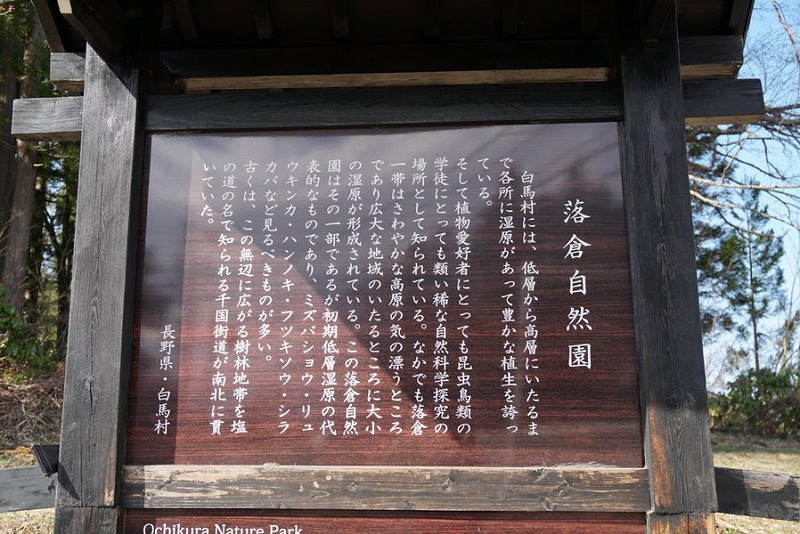 落倉自然園
白馬村には、低層から高層にいたるま
で各所に湿原があって豊かな植生を誇っ
ている。
そして植物愛好者にとっても昆虫鳥類の
学徒にとっても類い稀な自然科学探究の
場所として知られている。なかでも落倉
一帯はさわやかな高原の気の漂うところ
であり広大な地域のいたるところに大小
の湿原が形成されている。この落倉自然
園はその一部であるが初期低層湿原の代
表的なものであり、ミズバショウ・リュ
ウキンカ・ハンノキ・フツキソウ・シラ
カバなど見るべきものが多い。
古くは、この無辺に広がる樹林地帯を塩
の道の名で知られる千国街道が南北に貫
いていた。
長野県・白馬村
Ochikura Nature Park